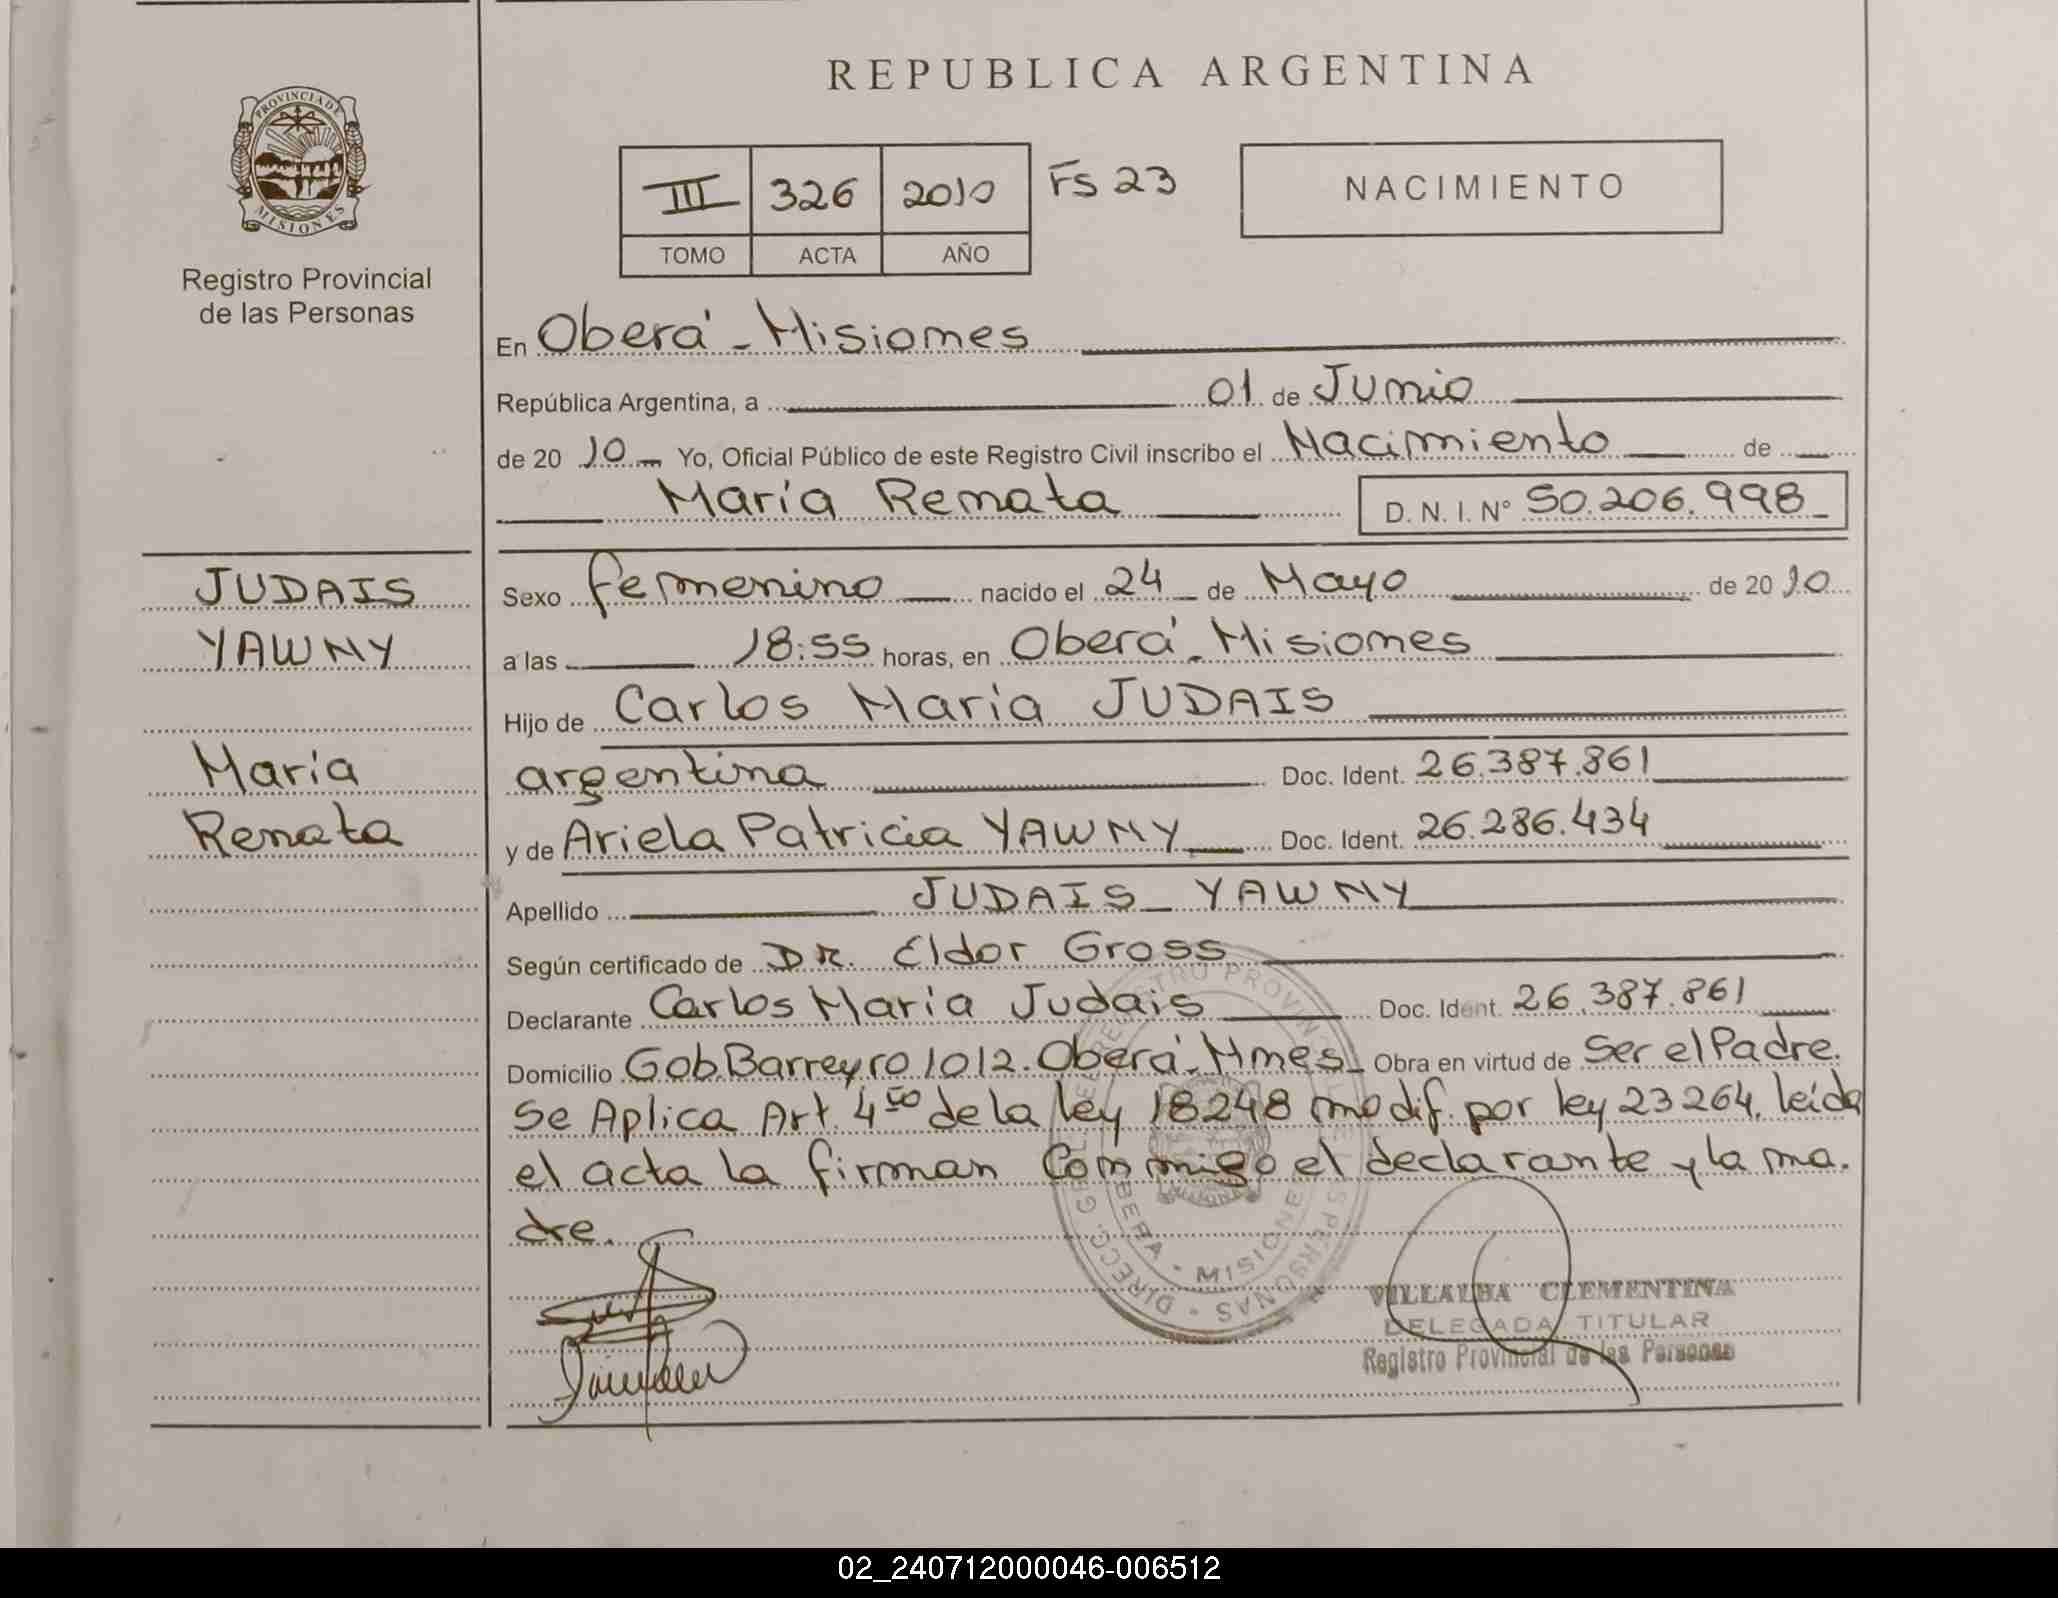 REPUBLICA ARGENTINA
PROVINCIA DE
MISIONES
Registro Provincial
de las Personas
III 326 2010 FS 23
TOMO ACTA AÑO
NACIMIENTO
En Oberá - Misiones
República Argentina, a 01 de Junio
de 20 10 Yo, Oficial Público de este Registro Civil inscribo el Nacimiento de
María Renata D. N. I. N° 50.206.998
JUDAIS
YAWNY
María
Renata
Sexo femenino nacido el 24 de Mayo de 20 10
a las 18:55 horas, en Oberá - Misiones
Hijo de Carlos María JUDAIS
argentina Doc. Ident. 26.387.861
y de Ariela Patricia YAWNY Doc. Ident. 26.286.434
Apellido JUDAIS YAWNY
Según certificado de DR. Eldor Gross
Declarante Carlos María Judais Doc. Ident. 26.387.861
Domicilio Gob. Barreyro 1012. Oberá - Mnes Obra en virtud de Ser el Padre.
Se Aplica Art. 4to de la ley 18248 modif. por ley 23264. leída
el acta la firman Conmigo el declarante y la ma.
dre.
VILLALBA CLEMENTINA
DELEGADA TITULAR
Registro Provincial de las Personas
02_240712000046-006512